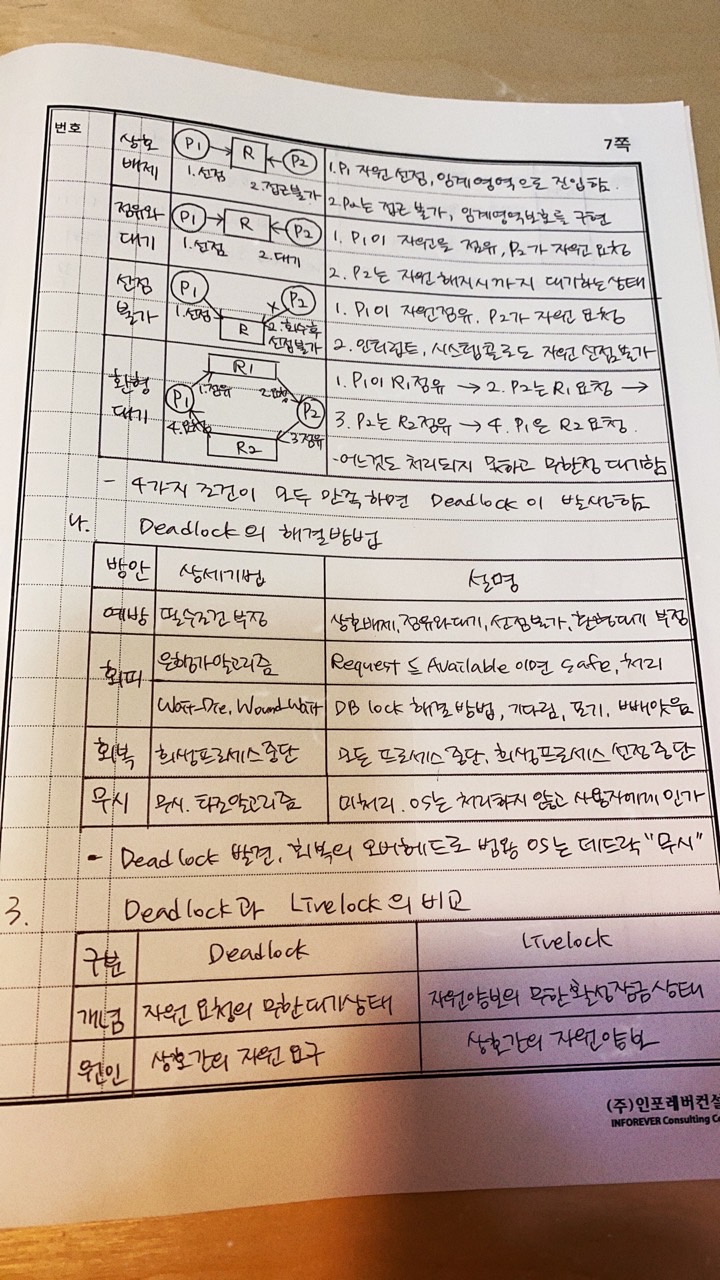 번호
7쪽
상호 배제
P1 R P2
1.선점 2.접근불가
1. P1 자원 선점, 임계영역으로 진입함.
2. P2는 접근 불가, 임계영역보호를 구현
점유와 대기
P1 R P2
1.선점 2.대기
1. P1이 자원을 점유, P2가 자원 요청
2. P2는 자원 해지시까지 대기하는 상태
선점 불가
P1 × P2
1.선점 R 2.회수후 선점불가
1. P1이 자원점유. P2가 자원 요청
2. 인터럽트, 시스템콜로도 자원 선점불가
환형 대기
R1
P1 1.점유 2.요청 P2
4.요청 R2 3.점유
1. P1이 R1점유 → 2. P2는 R1 요청 →
3. P2는 R2점유 → 4. P1은 R2 요청.
-어느것도 처리되지 못하고 무한정 대기함
- 4가지 조건이 모두 만족하면 Deadlock이 발생함
나. Deadlock의 해결방법
방안 상세기법 설명
예방 필수조건 부정 상호배제, 점유와대기, 선점불가, 환형대기 부정
회피 은행가알고리즘 Request ≤ Available 이면 Safe, 처리
Wait-Die, Wound-Wait DB lock 해결 방법, 기다림, 포기, 빼앗음
회복 희생프로세스 중단 모든 프로세스 중단, 희생프로세스 선정 중단
무시 무시. 타조알고리즘 미처리. OS는 처리하지 않고 사용자에게 인가
- Deadlock 발견, 회복의 오버헤드로 범용 OS는 데드락 "무시"
3. Deadlock과 Livelock의 비교
구분 Deadlock Livelock
개념 자원 요청의 무한대기상태 자원양보의 무한 활성잠금 상태
원인 상호간의 자원 요구 상호간의 자원양보
(주)인포레버컨설
INFOREVER Consulting C